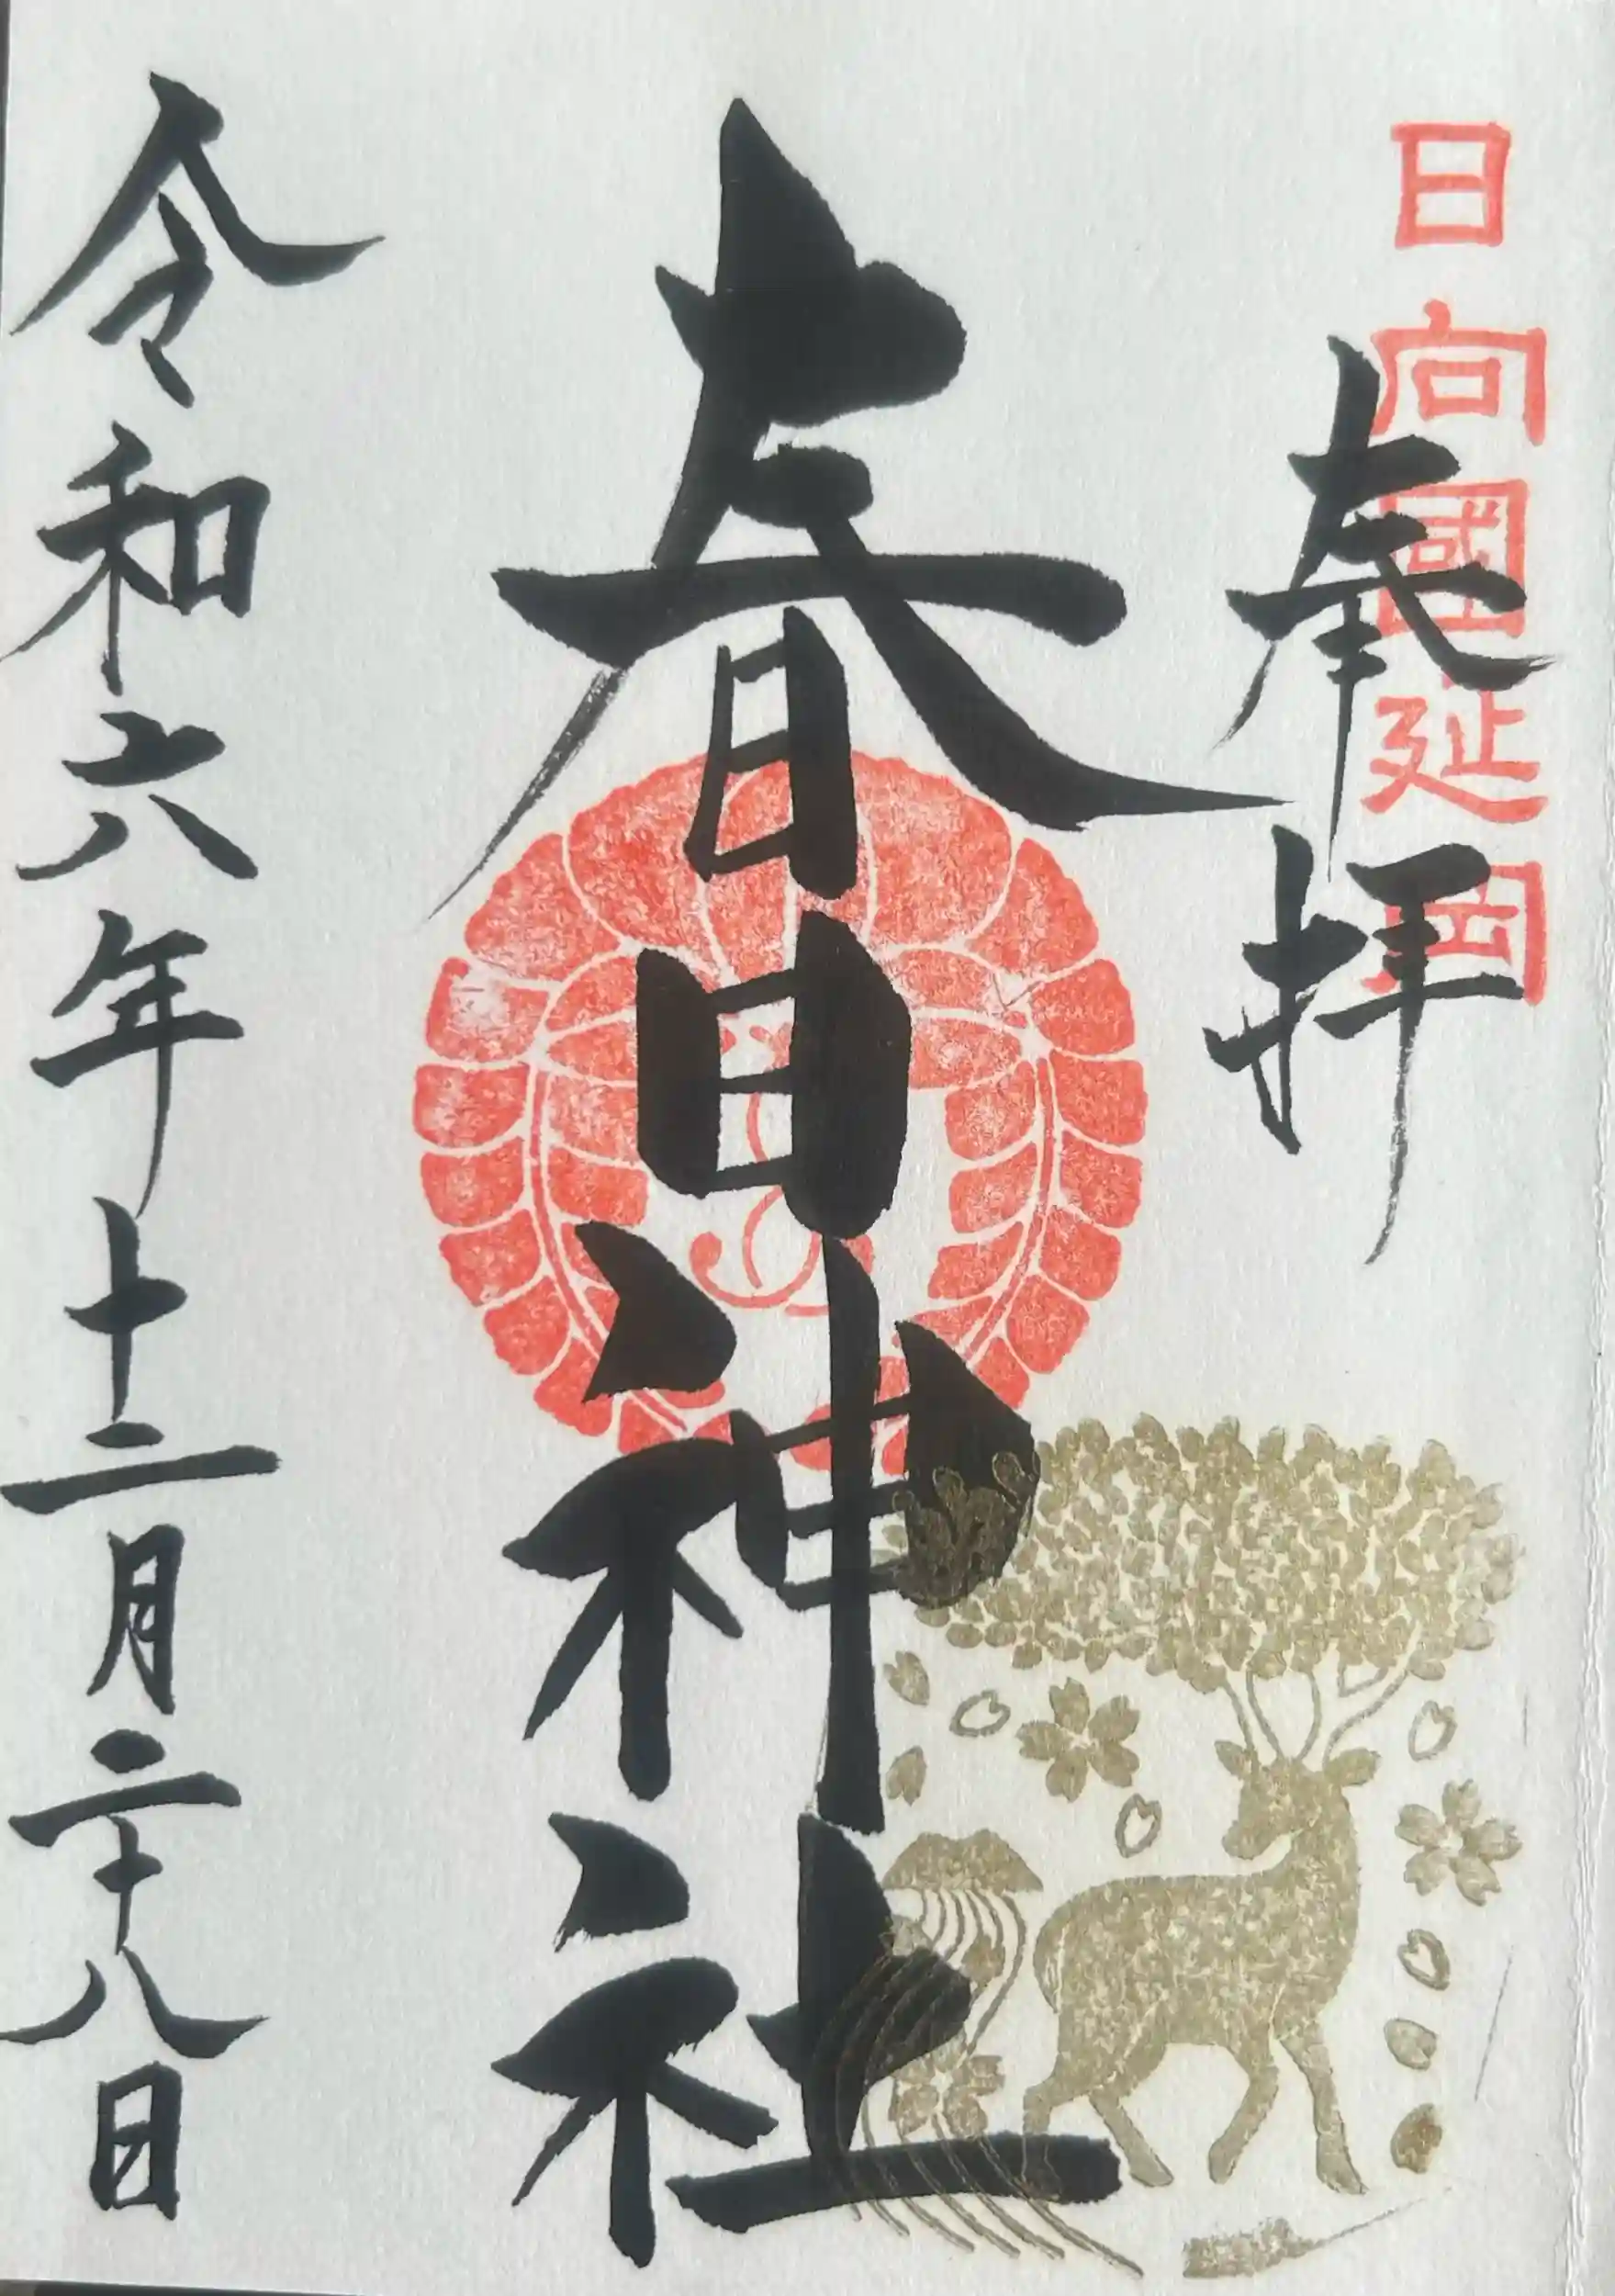 日向國延岡
奉拝
春日神社
令和六年十二月二十八日